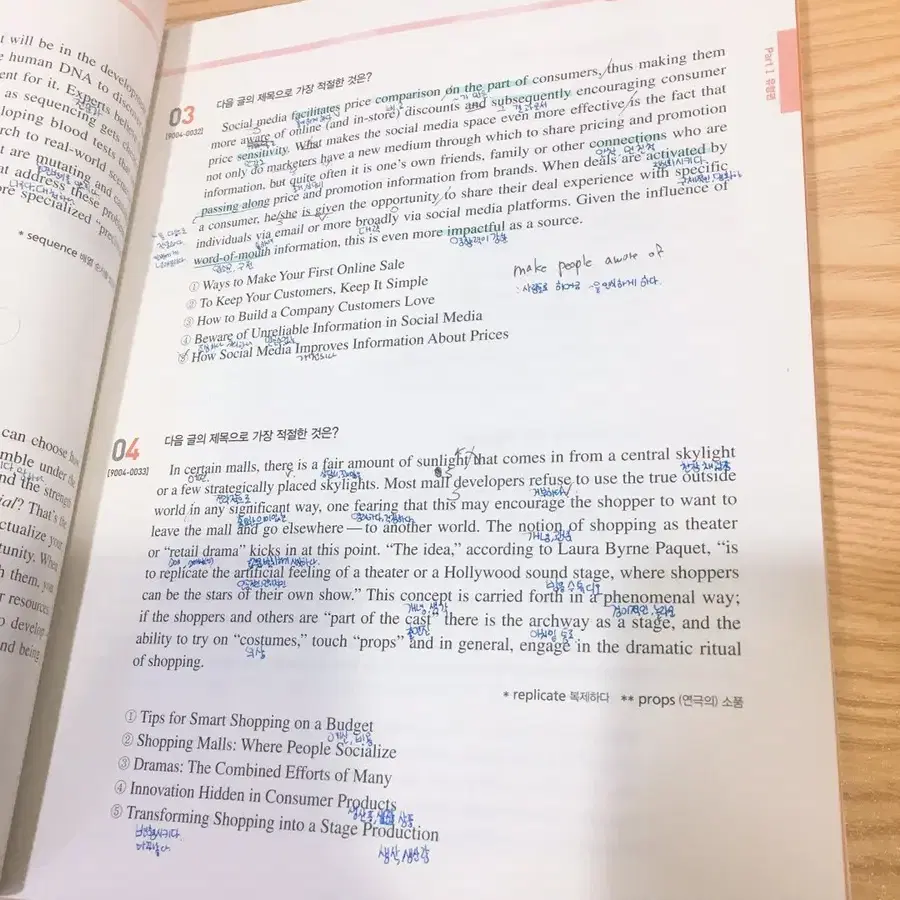 t will be in the develop
human DNA to discove
ent for it. Experts believe
as sequencing gets chea
loping blood tests tha
rch to real-world scena
t are mutating and
at address these proble
ore specialized "preci
* sequence 배열 순서를
can choose how
mble under the
nd the strength
ial? That's the
ctualize your
tunity. When
h them, you
r resources
o develop
nd being
Part I 유형편
03
[9004-0032]
다음 글의 제목으로 가장 적절한 것은?
Social media facilitates price comparison on the part of consumers, thus making them
more aware of online (and in-store) discounts and subsequently encouraging consumer
price sensitivity. What makes the social media space even more effective is the fact that
not only do marketers have a new medium through which to share pricing and promotion
information, but quite often it is one's own friends, family or other connections who are
passing along price and promotion information from brands. When deals are activated by
a consumer, he/she is given the opportunity to share their deal experience with specific
individuals via email or more broadly via social media platforms. Given the influence of
word-of-mouth information, this is even more impactful as a source.
① Ways to Make Your First Online Sale
② To Keep Your Customers, Keep It Simple
③ How to Build a Company Customers Love
④ Beware of Unreliable Information in Social Media
⑤ How Social Media Improves Information About Prices
make people aware of
: 사람들로 하여금 ~을 인식하게 하다.
04
[9004-0033]
다음 글의 제목으로 가장 적절한 것은?
In certain malls, there is a fair amount of sunlight that comes in from a central skylight
or a few strategically placed skylights. Most mall developers refuse to use the true outside
전략적으로
거부하다
world in any significant way, one fearing that this may encourage the shopper to want to
leave the mall and go elsewhere — to another world. The notion of shopping as theater
개념, 관념
or "retail drama" kicks in at this point. "The idea," according to Laura Byrne Paquet, "is
to replicate the artificial feeling of a theater or a Hollywood sound stage, where shoppers
can be the stars of their own show." This concept is carried forth in a phenomenal way;
개념, 생각
if the shoppers and others are "part of the cast" there is the archway as a stage, and the
출연진
ability to try on "costumes," touch "props" and in general, engage in the dramatic ritual
의상
of shopping.
* replicate 복제하다 ** props (연극의) 소품
① Tips for Smart Shopping on a Budget
예산, 비용
② Shopping Malls: Where People Socialize
③ Dramas: The Combined Efforts of Many
④ Innovation Hidden in Consumer Products
⑤ Transforming Shopping into a Stage Production
변형시키다.
바꿔놓다.
생산, 생산량